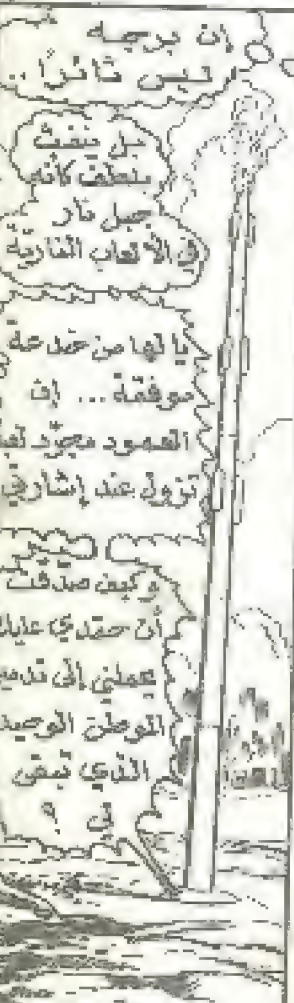 إن برجيه
ليس ثائرًا ..
بل ينفث
بلطف كأنه
جبل نار
في الألعاب النارية
يا لها من خدعة
موفقة ... إن
العمود مجرّد لعبة
تزول عند إشارتي
وكيف صدقت
أن حقدي عليك
يحملني إلى تدمير
الوطن الوحيد
الذي تبقى
لي ؟